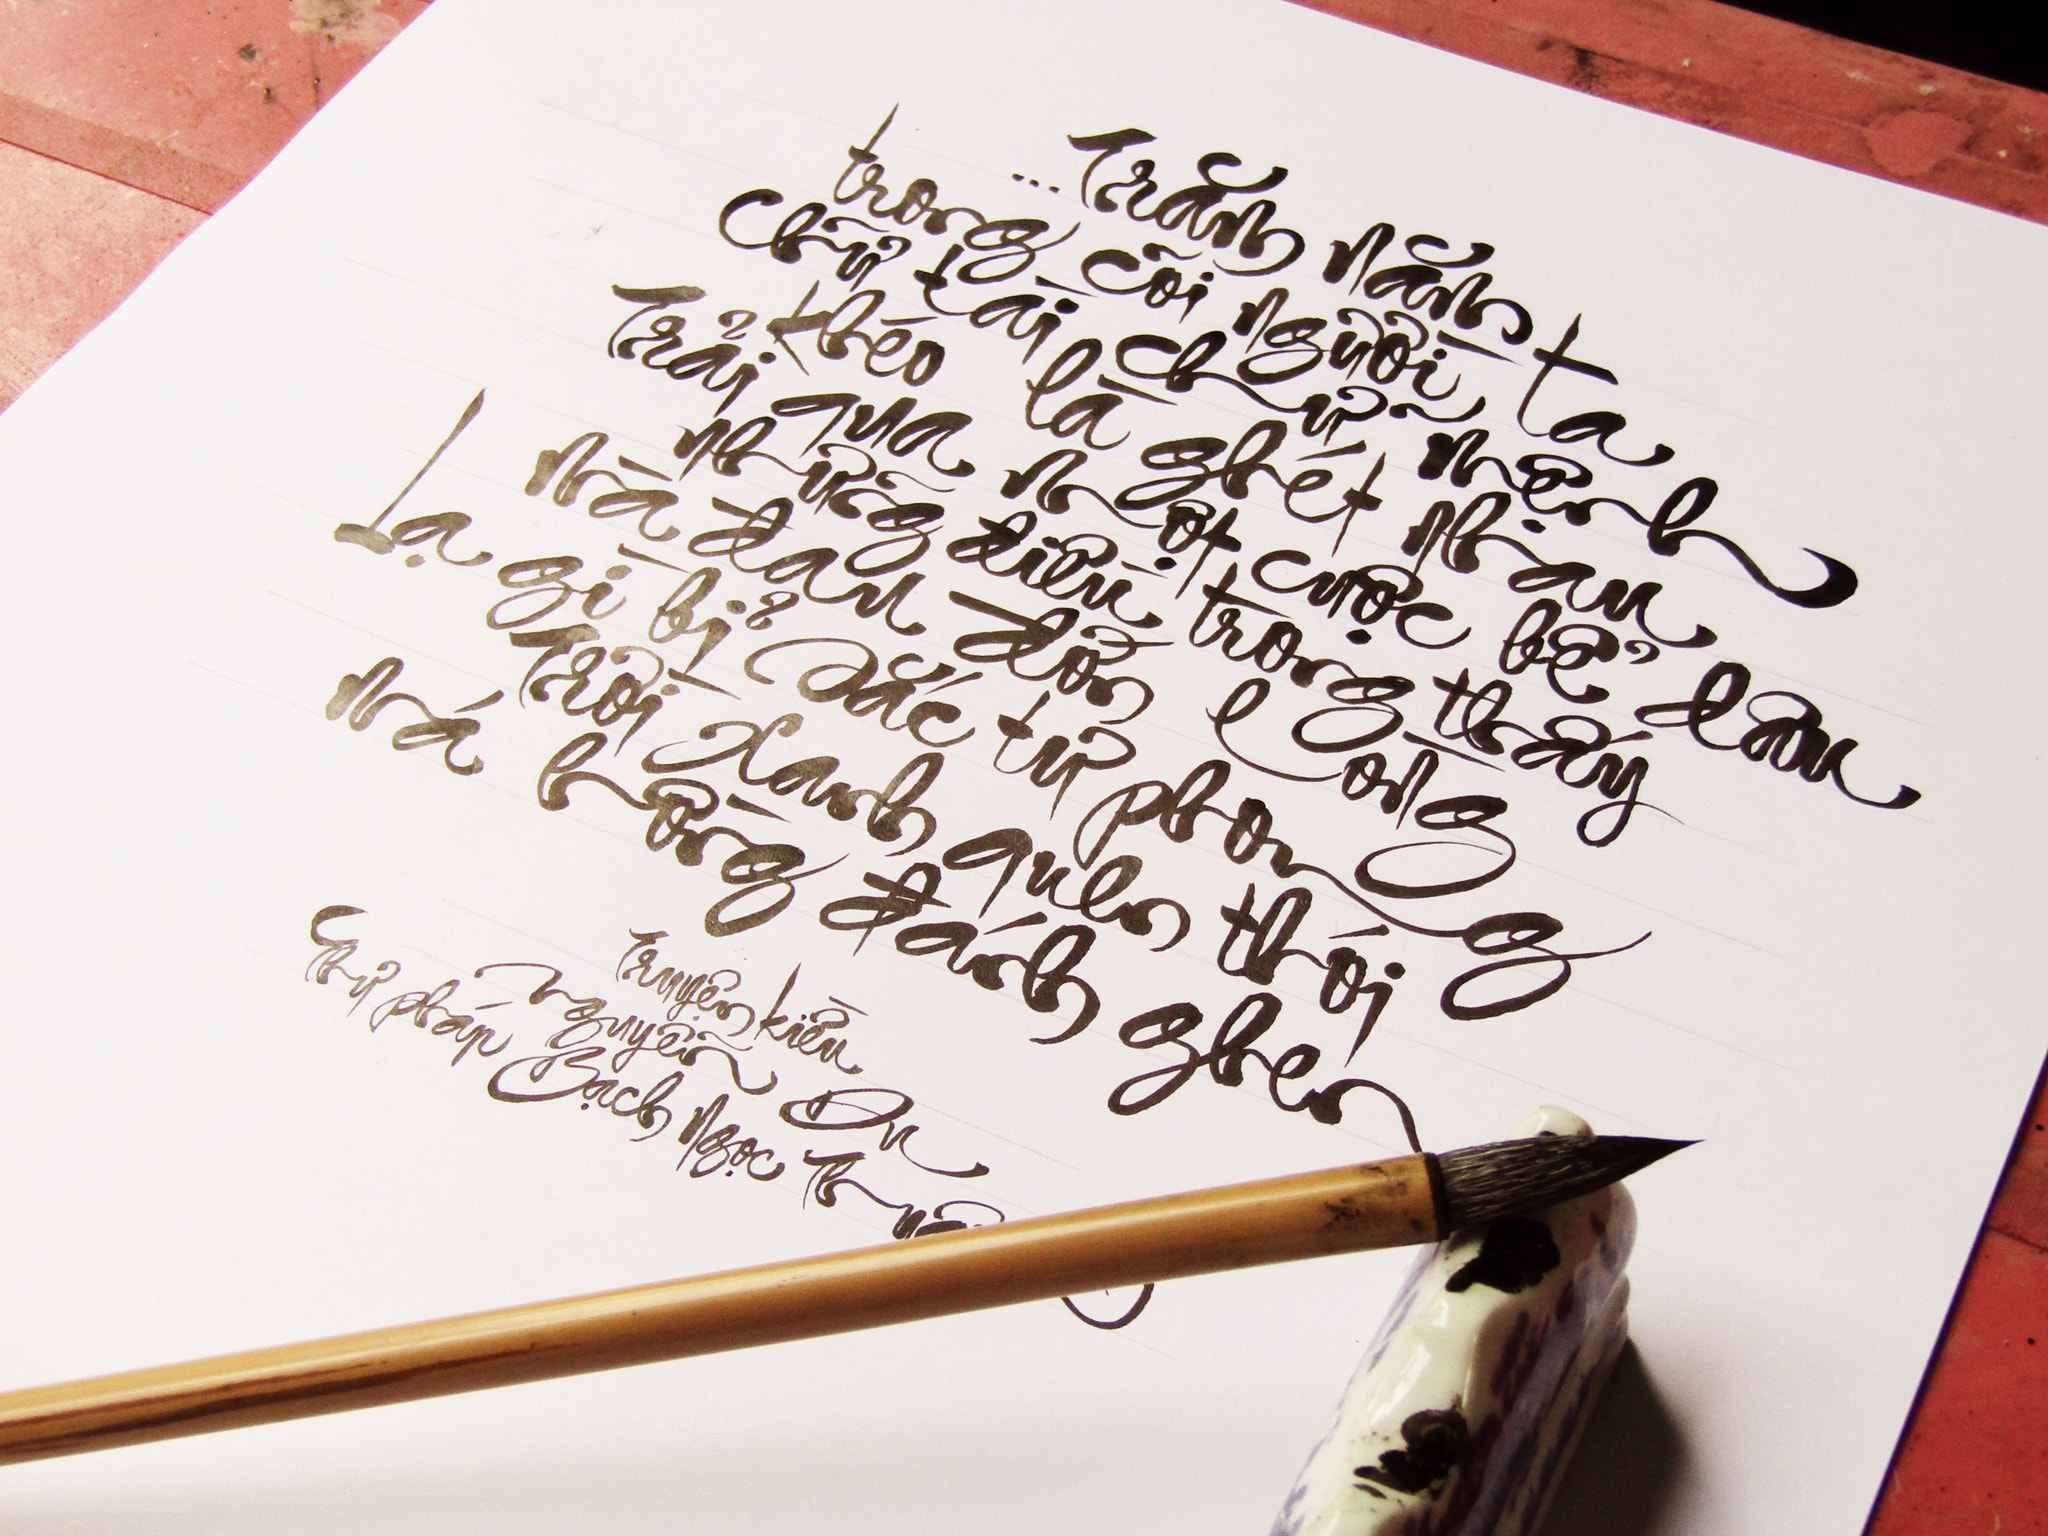 ...Trăm năm
trong cõi người ta
Chữ tài chữ mệnh
khéo là ghét nhau
Trải qua một cuộc bể dâu
những điều trông thấy
mà đau đớn lòng
Lạ gì bỉ sắc tư phong
Trời xanh quen thói
má hồng đánh ghen
Truyện kiều
Nguyễn Du
Thư pháp Bạch Ngọc